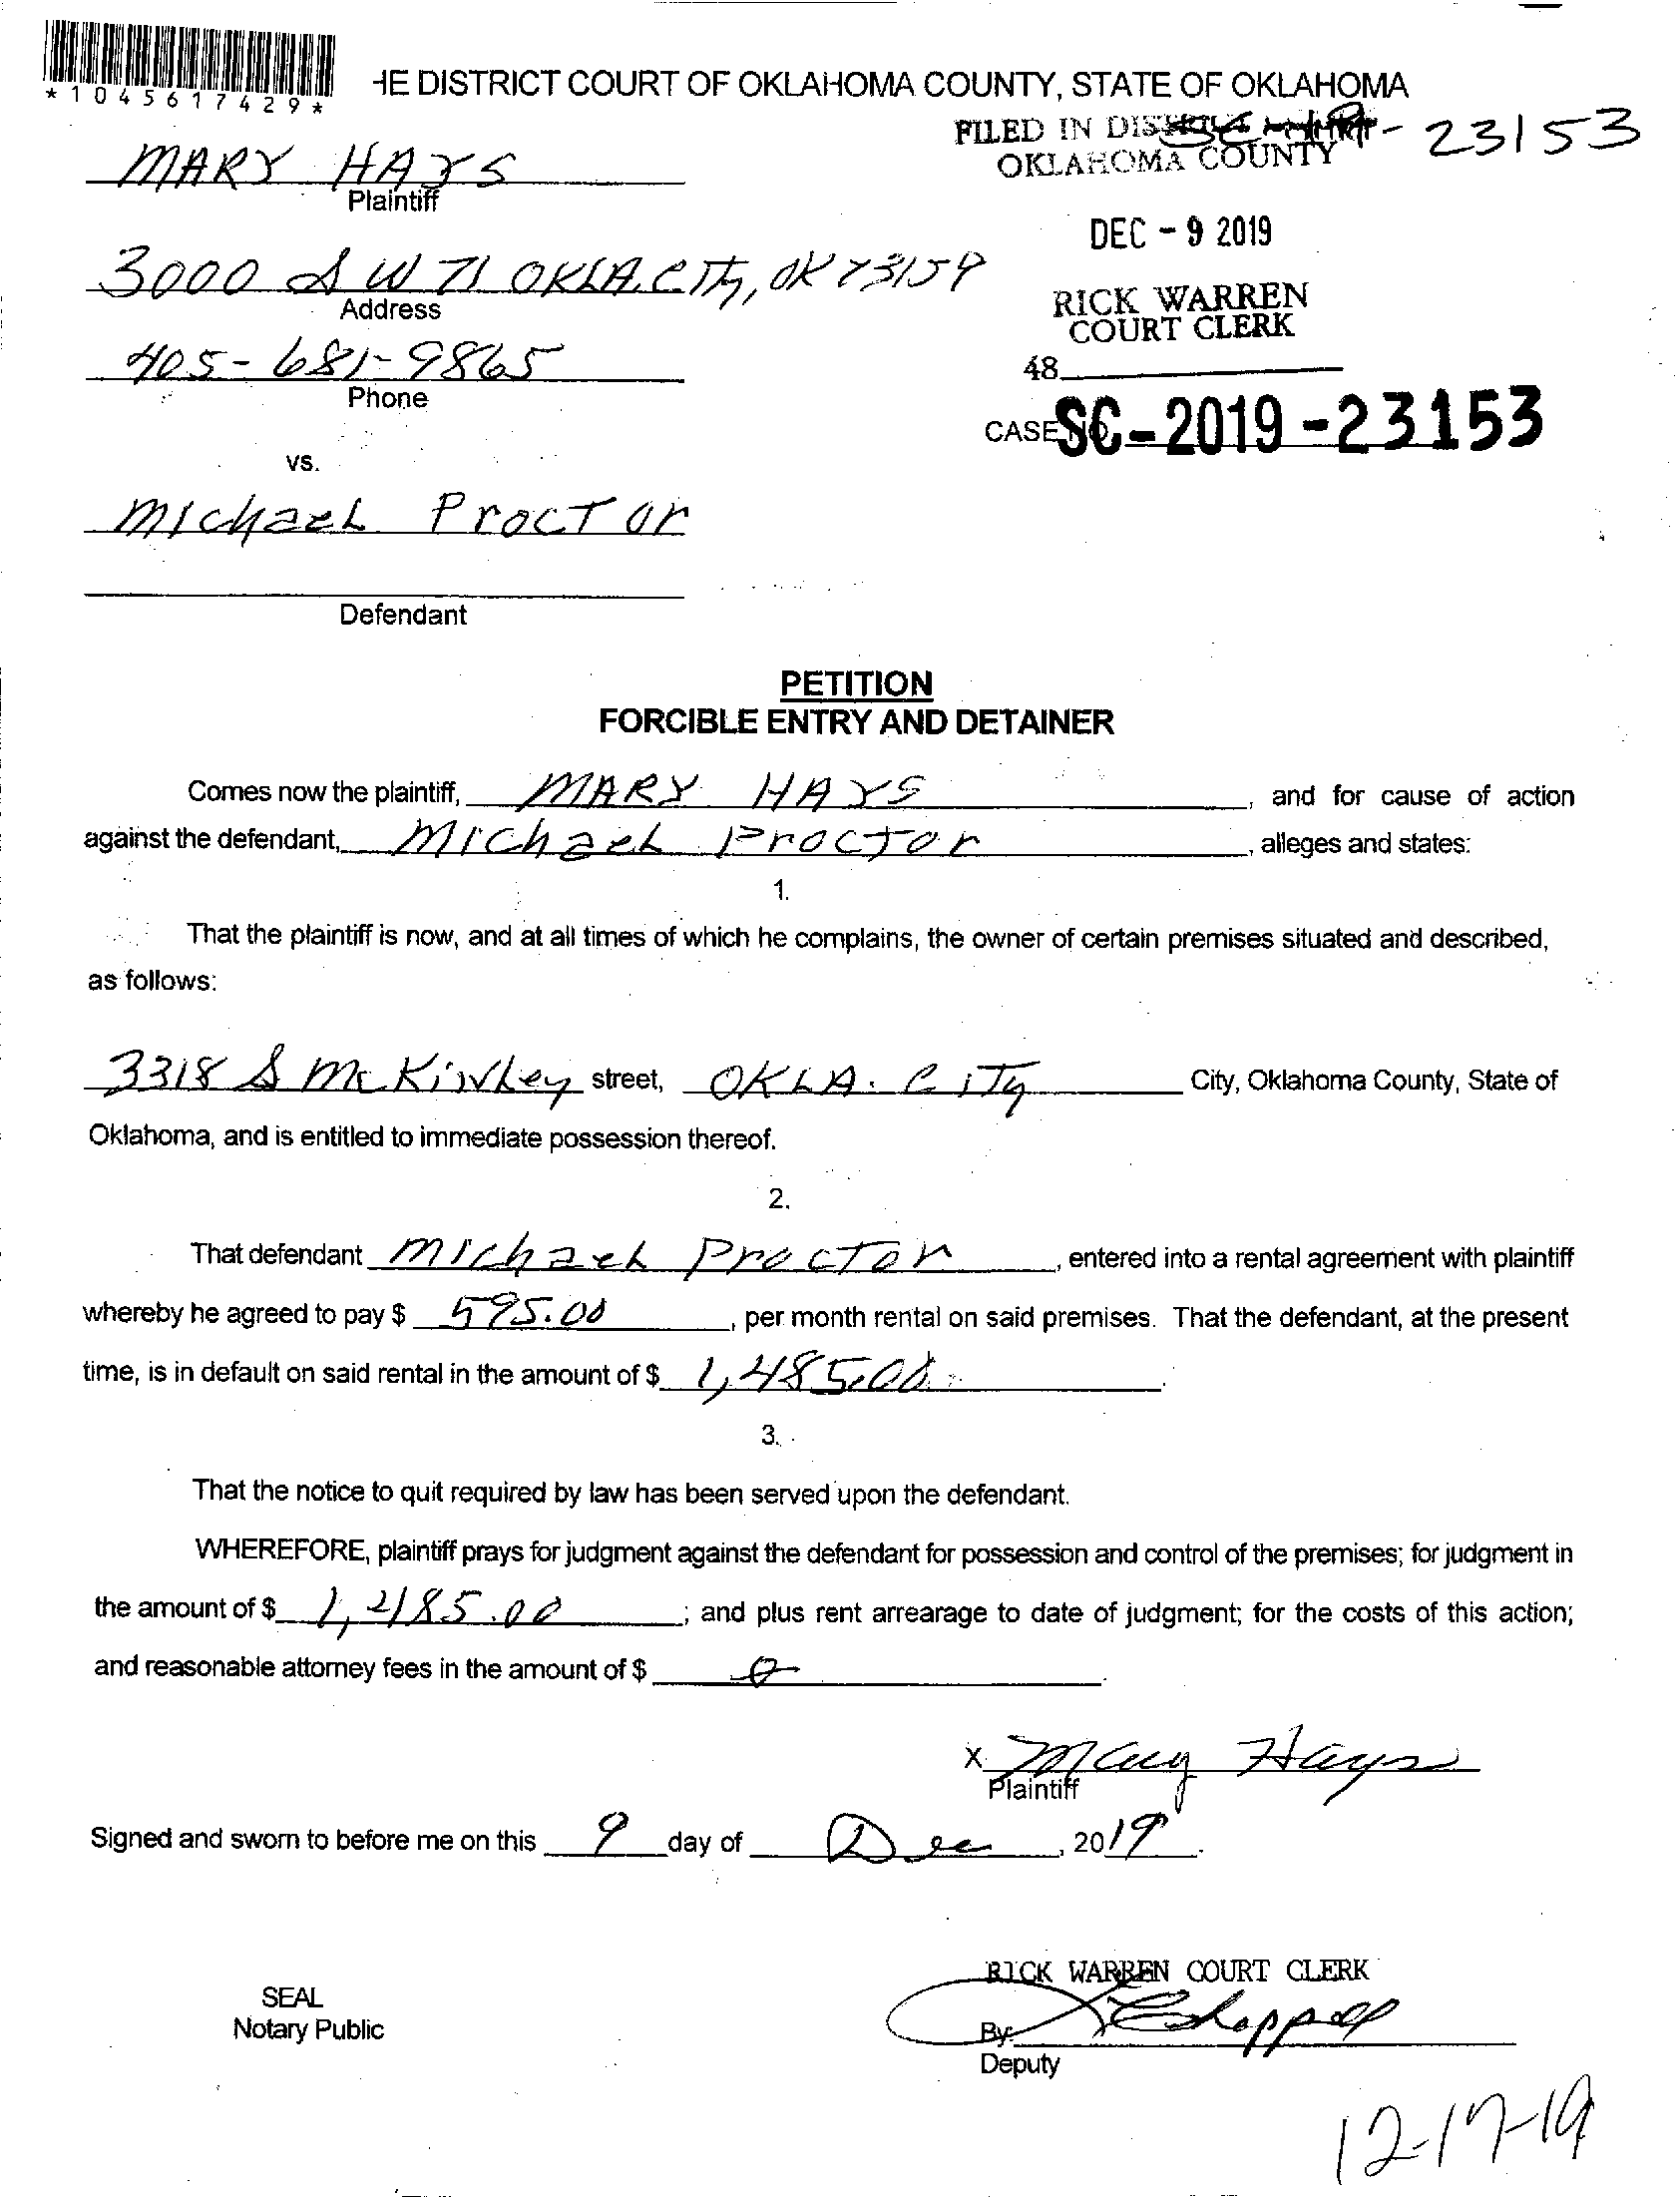 *1045617429*
HE DISTRICT COURT OF OKLAHOMA COUNTY, STATE OF OKLAHOMA
FILED IN DISTRICT COURT - 23153
OKLAHOMA COUNTY
MARY HAYS
Plaintiff
DEC - 9 2019
3000 S W 71 OKLA. CITY, OK 73159
Address
RICK WARREN
COURT CLERK
405-681-9865
Phone
48
CASE NO. SC-2019-23153
vs.
Michael Proctor
Defendant
PETITION
FORCIBLE ENTRY AND DETAINER
Comes now the plaintiff, MARY HAYS, and for cause of action
against the defendant, Michael Proctor, alleges and states:
1.
That the plaintiff is now, and at all times of which he complains, the owner of certain premises situated and described,
as follows:
3318 S McKinley street, OKLA. CITY City, Oklahoma County, State of
Oklahoma, and is entitled to immediate possession thereof.
2.
That defendant Michael Proctor, entered into a rental agreement with plaintiff
whereby he agreed to pay $ 595.00, per month rental on said premises. That the defendant, at the present
time, is in default on said rental in the amount of $ 1,485.00.
3.
That the notice to quit required by law has been served upon the defendant.
WHEREFORE, plaintiff prays for judgment against the defendant for possession and control of the premises; for judgment in
the amount of $ 1,485.00; and plus rent arrearage to date of judgment; for the costs of this action;
and reasonable attorney fees in the amount of $ 0.
X Mary Hays
Plaintiff
Signed and sworn to before me on this 9 day of Dec, 2019.
RICK WARREN COURT CLERK
SEAL
Notary Public
By:
Deputy
12-17-19